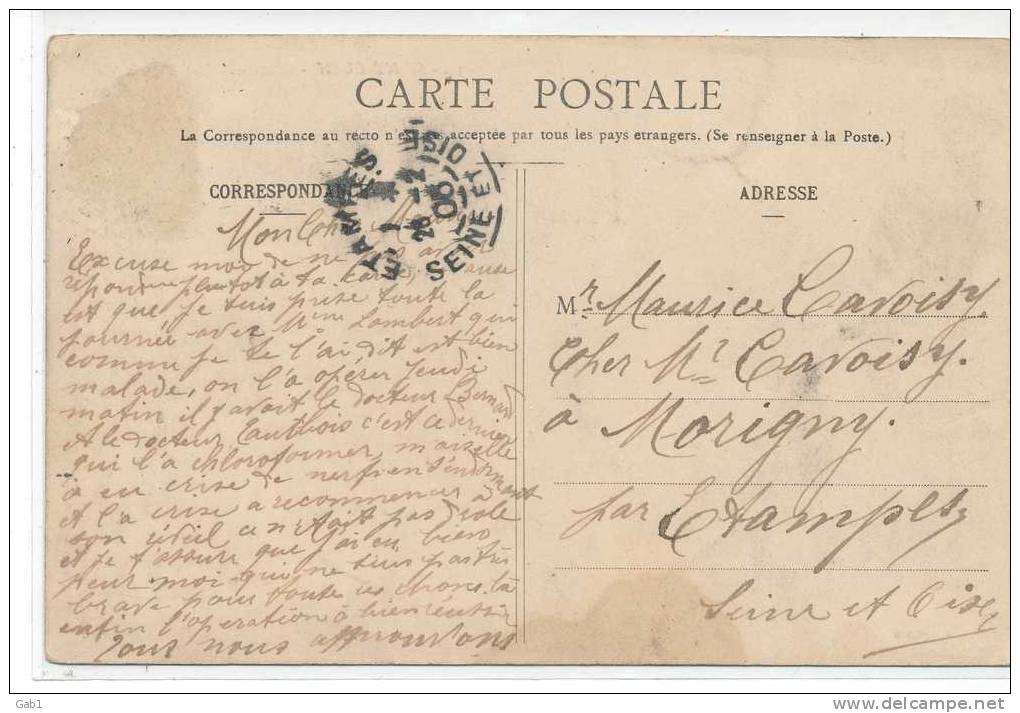 CARTE POSTALE
La Correspondance au recto n'est pas acceptée par tous les pays etrangers. (Se renseigner à la Poste.)
CORRESPONDANCE
ETAMPES
28 -2
06
SEINE ET OISE
Mon Cher
Excuse moi de ne pas avoir
répondu plutot à ta carte, cause
est que je suis prise toute la
journée avec Mme Lombert qui
comme je te l'ai dit est bien
malade, on l'a opérer jeudi
matin il y avait le docteur
et le docteur c'est ce dernier
qui l'a chloroformer, mais elle
a eu crise de nerfs en s'endormant
et la crise a recommencer à
son réveil ce n'etait pas drole
et je t'assure que j'ai eu bien
peur moi qui ne suis pas très
brave pour toutes ces choses là
enfin l'operation à bien reussir
nous
ADRESSE
Mr Maurice Cavoisy.
Cher Mr Cavoisy.
à Morigny.
par Etampes,
Seine et Oise,
Gab1
delcampe.net